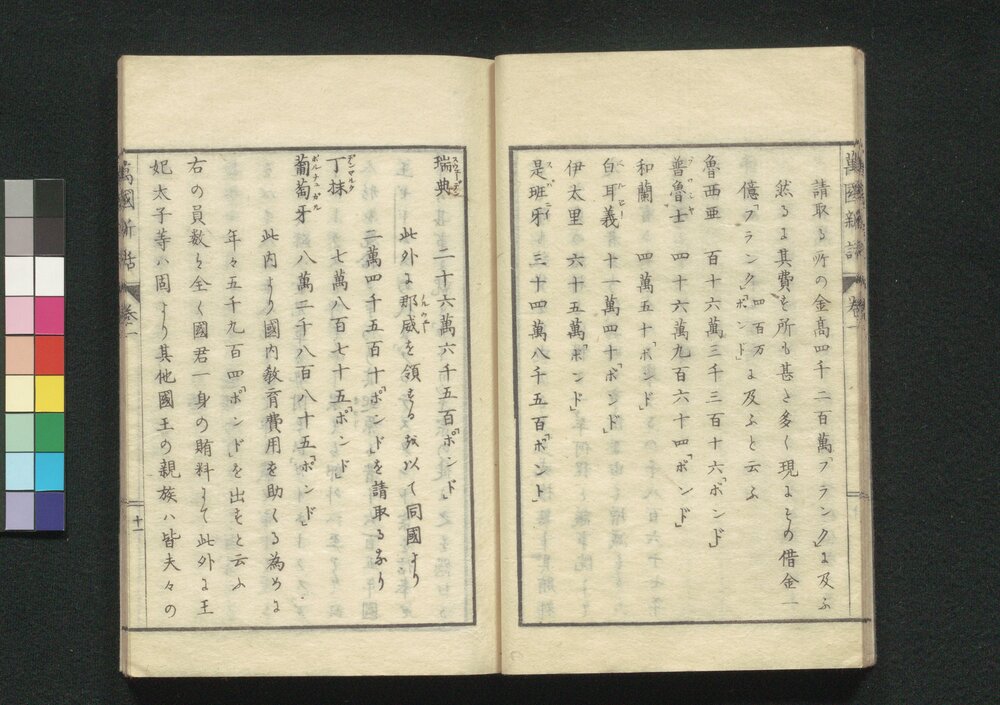 萬國新話 卷一
請取る所の金高四千二百萬「フランク」に及ふ
然るに其費も所も甚さ多く現にその借金一
億「フランク」四百万「ポンド」に及ふと云ふ
魯西亜 百十六萬三千三百十六「ポンド」
普魯士 四十六萬九百六十四「ポンド」
和蘭 四萬五十「ポンド」
白耳義 十一萬四十「ポンド」
伊太里 六十五萬「ポンド」
是班牙 三十四萬八千五百「ポンド」
瑞典 二十六萬六千五百「ポンド」
此外に那威を領するを以て同國より
二萬四千五百十「ポンド」を請取るなり
丁抹 七萬八百七十五「ポンド」
葡萄牙 八萬二千八百八十五「ポンド」
此内より國内教育費用を助くる為めに
年々五千九百四「ポンド」を出すと云ふ
右の員数ハ全く國君一身の賄料にて此外に王
妃太子等ハ固より其他國王の親族ハ皆夫々の
萬國新話 卷一 十一